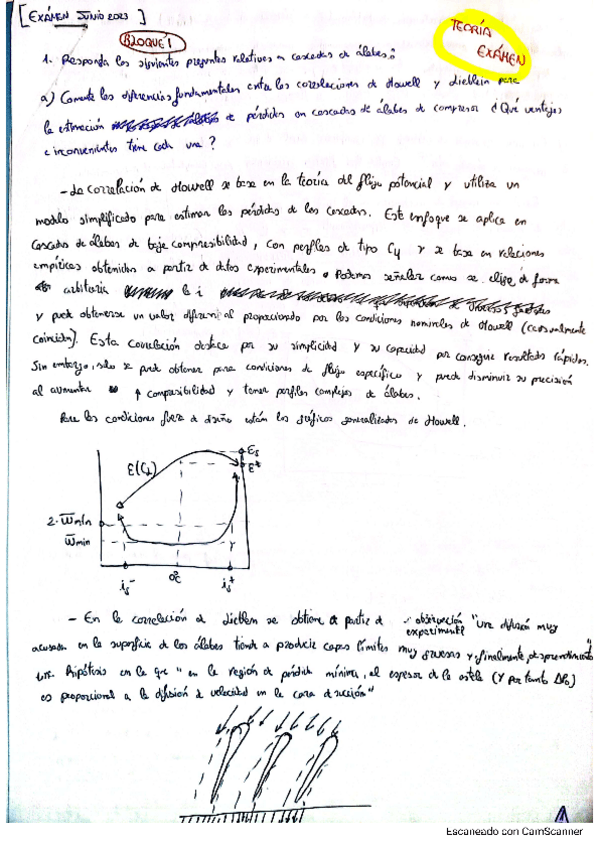 [EXÁMEN JUNIO 2023]
TEORÍA
EXÁMEN
BLOQUE 1
1. Responda las siguientes preguntas relativas a cascadas de álabes:
a) Comente las diferencias fundamentales entre las correlaciones de Howell y Lieblein para
la estimación de pérdidas en cascadas de álabes de compresor ¿Qué ventajas
e inconvenientes tiene cada una?
- La correlación de Howell se basa en la teoría del flujo potencial y utiliza un
modelo simplificado para estimar las pérdidas de las cascadas. Este enfoque se aplica en
cascadas de álabes de baja compresibilidad, con perfiles de tipo C4 y se basa en relaciones
empíricas obtenidas a partir de datos experimentales. Podemos señalar como se elige de forma
arbitraria la i
y puede obtenerse un valor diferente al proporcionado por las condiciones nominales de Howell (casualmente
coinciden). Esta correlación destaca por su simplicidad y su capacidad por conseguir resultados rápidos.
Sin embargo, solo se puede obtener para condiciones de flujo específico y puede disminuir su precisión
al aumentar ↑ compresibilidad y tener perfiles complejos de álabes.
Para las condiciones fuera de diseño están los gráficos generalizados de Howell.
ε(C4)
εs
ε*
2·ω̅min
ω̅min
is-
0°C
is+
- En la correlación de Lieblein se obtiene a partir de observación experimental "Una difusión muy
acusada en la superficie de los álabes tiende a producir capas límites muy gruesas y, finalmente, desprendimiento"
Hipótesis en la que "en la región de pérdida mínima, el espesor de la estela (y por tanto ΔP0)
es proporcional a la difusión de velocidad en la cara de succión"
1
Escaneado con CamScanner